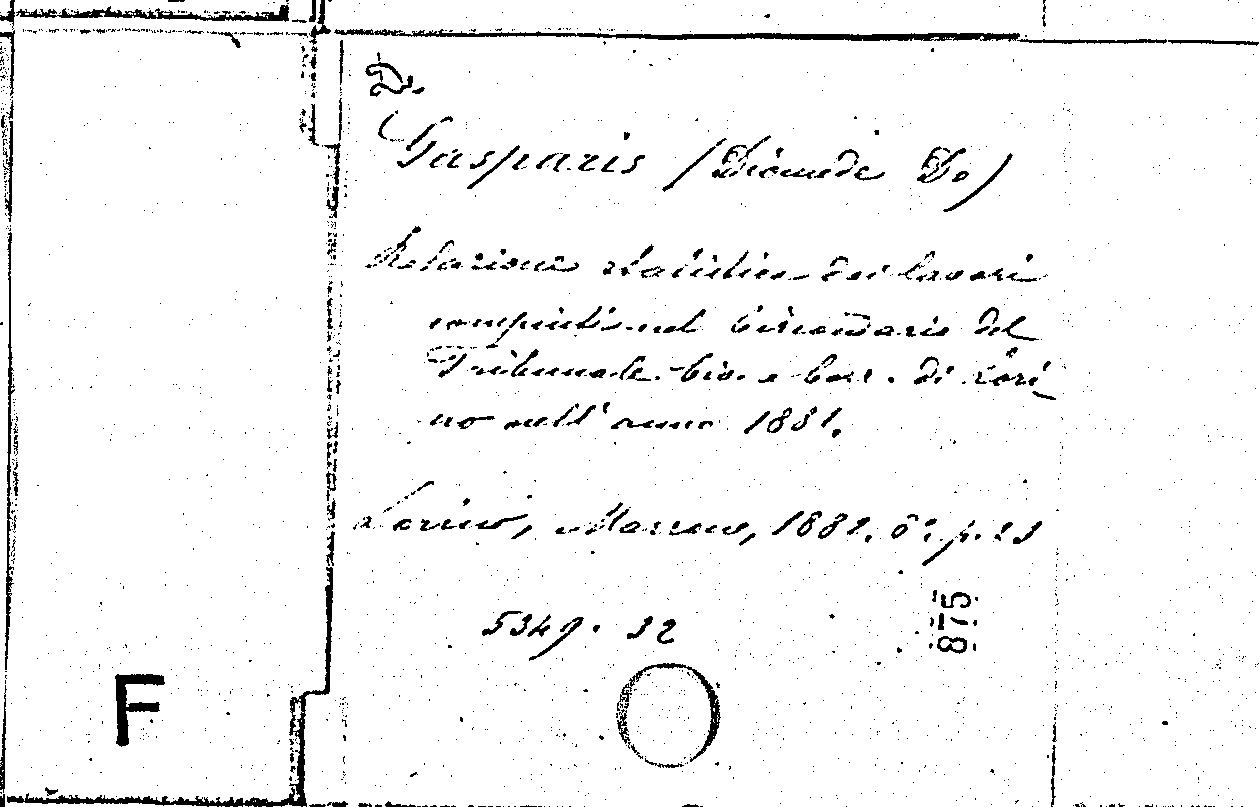 D.
Gasparis (Diomede De)
Relazione statistica dei lavori
compiuti nel Circondario del
Tribunale Civ. e Corr. di Tori
no nell'anno 1881.
Torino, Marzono, 1882. 8°. p. 23
5349. 32
875
F